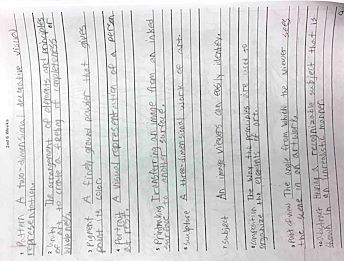 2nd 6 Weeks
• Pattern A two-dimensional decorative visual
representation.
• Unity The arrangement of elements and principles
of art to create a feeling of completeness or
wholeness.
• Pigment A finely ground powder that gives
paint its color.
• Portrait A visual representation of a person
at rest.
• Printmaking Transferring an image from an inked
surface to another surface.
• Sculpture A three-dimensional work of art.
• Subject An image viewers can easily identify.
The way the principles are used to
organize the elements of art.
• Point of View The angle from which the viewer sees
the scene in an artwork.
a recognizable subject that is
shown in an unrealistic manner